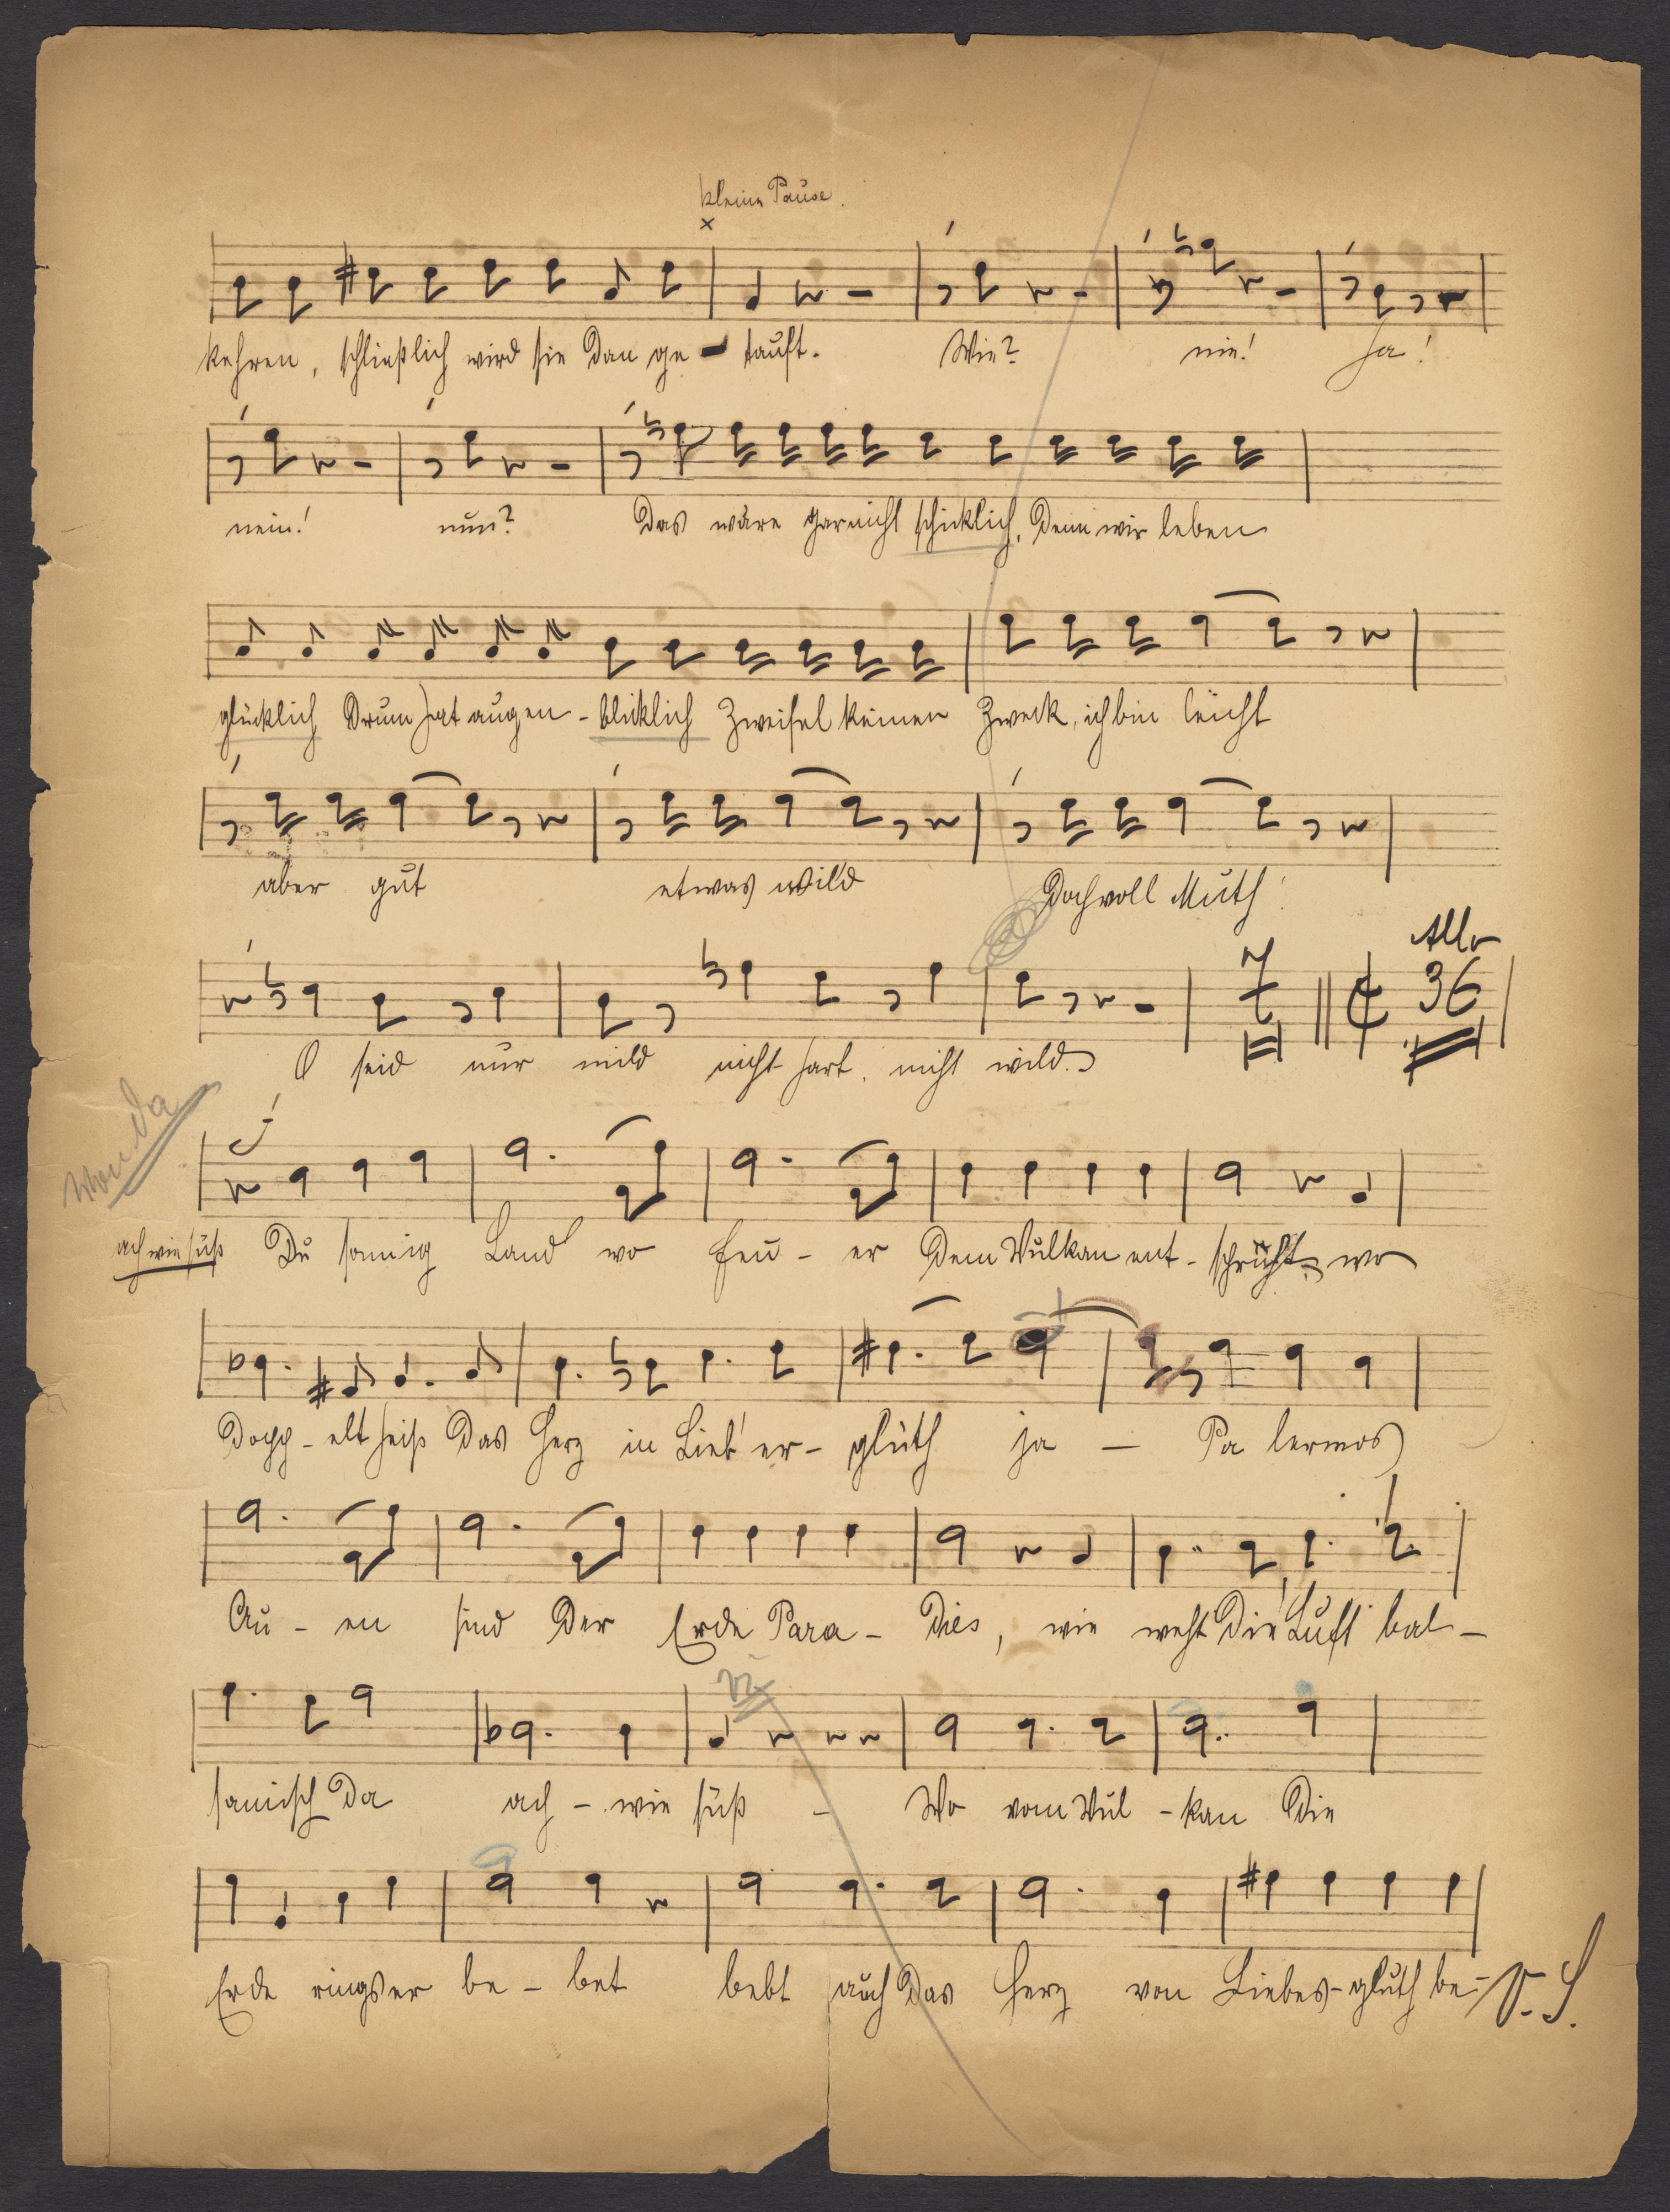 kleine Pause.
kehren, schließlich wird sie dan ge - tauft. Wie? nie! Ja!
nein! nun? Das wäre garnicht schicklich, denn wir leben
glücklich drum hat augen - blicklich Zweifel keinen Zweck, ich bin leicht
aber gut etwas wild doch voll Muth!
Allo
7 36
O seid nur mild nicht hart, nicht wild.
ach wie süß Du sonnig Land wo Feu - er dem Vulkan ent - sprüht, wo
dopp - elt heiß das Herz in Lieb' er - glüth ja - Pa lermos
Au - en sind der Erde Para - dies, wie weht die Luft bal -
samisch da ach - wie süß - Wo vom Vul - kan die
Erde rings er be - bet bebt auch das Herz von Liebes - gluth be - V. S.